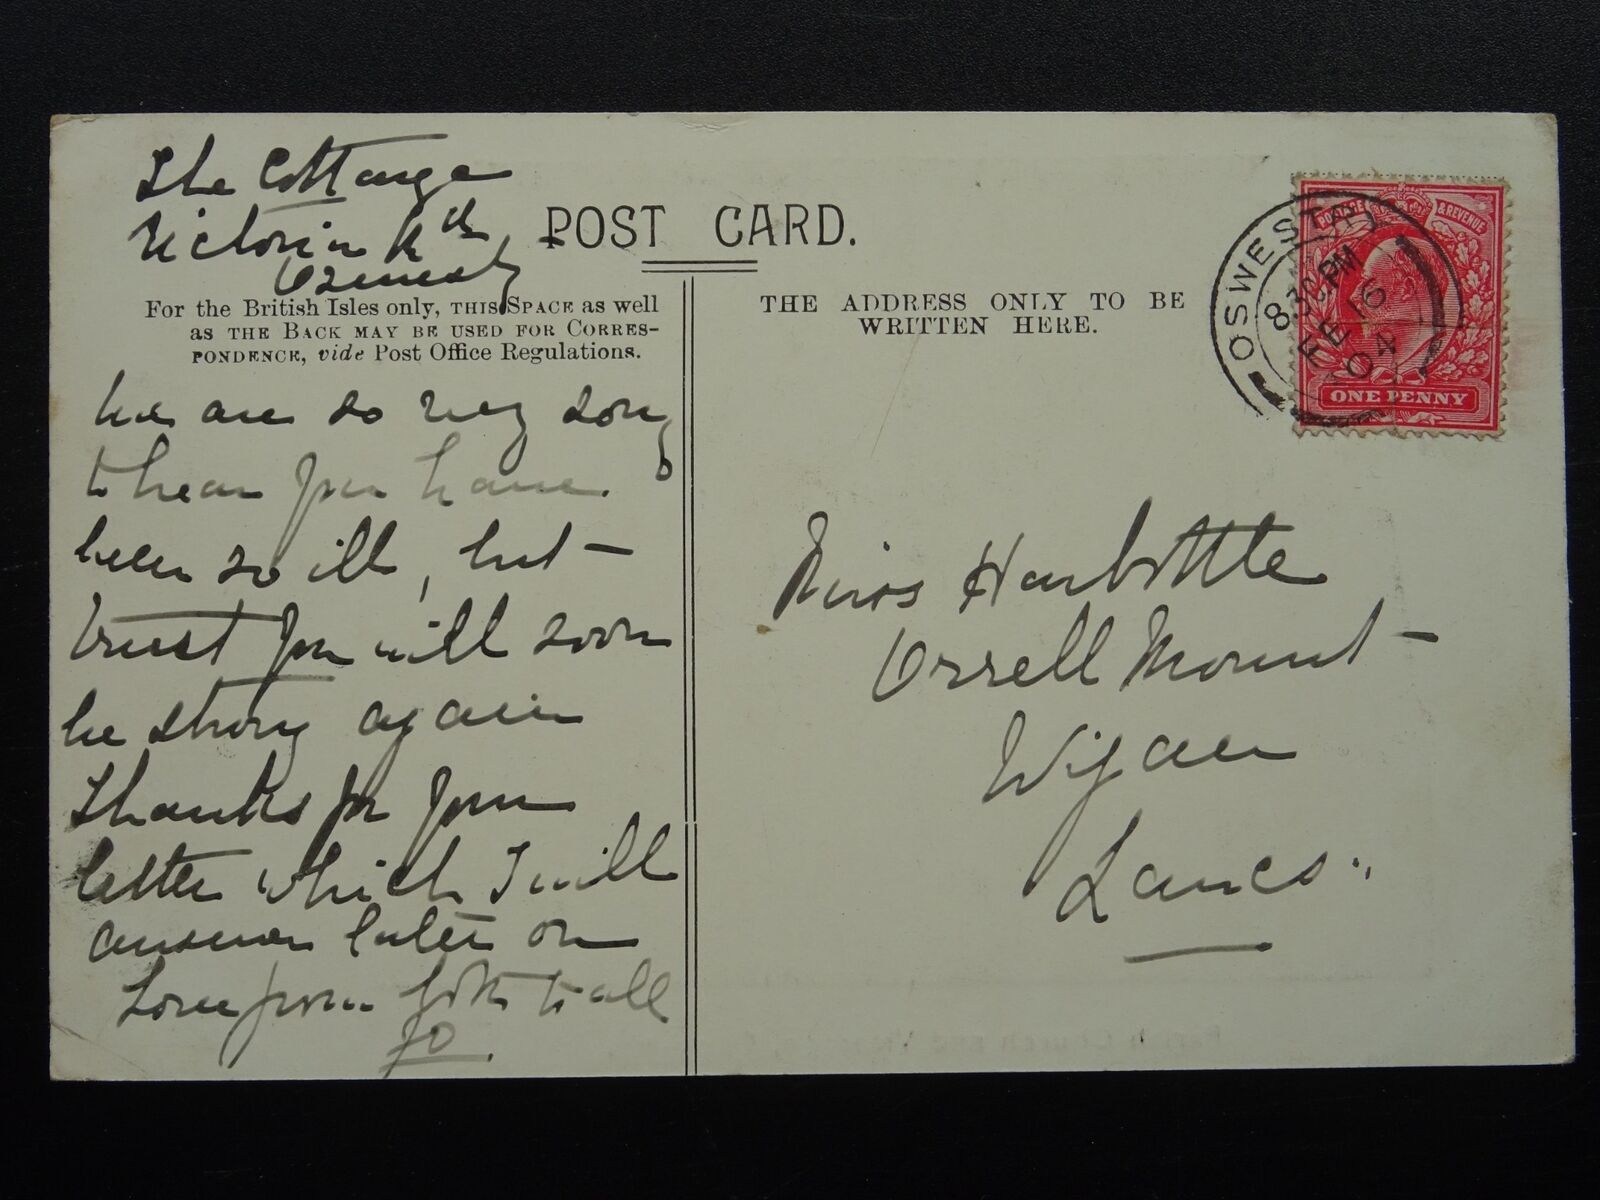 The Cottage
Victoria Rd
Oswestry
POST CARD.
For the British Isles only, THIS SPACE as well
as THE BACK MAY BE USED FOR CORRES-
PONDENCE, vide Post Office Regulations.
THE ADDRESS ONLY TO BE
WRITTEN HERE.
OSWESTRY
8 30 PM
FE 16
04
POSTAGE & REVENUE
ONE PENNY
We are so very sorry
to hear you have
been so ill, but
trust you will soon
be strong again
Thanks for your
letter which I will
answer later on
Love from both to all
Miss Harbottle
Orrell Mount
Wigan
Lancs.